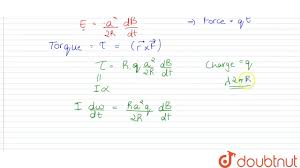 E = a² / 2R dB/dt ⇒ Force = qE
Torque = τ = (r⃗ × F⃗)
τ = R q a²/2R dB/dt Charge = q
|| λ2πR
Iα
I dω/dt = R a² q / 2R dB/dt
doubtnut